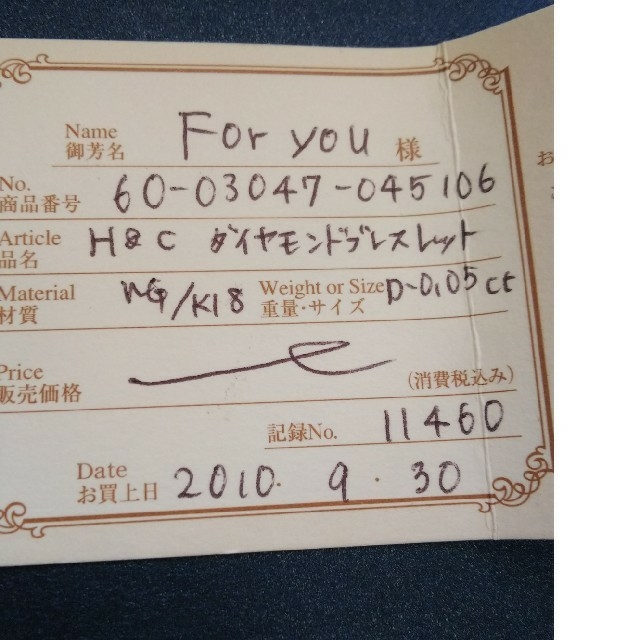 Name
御芳名 For you 様
No.
商品番号 60-03047-045106
Article
品名 H&C ダイヤモンドブレスレット
Material
材質 WG/K18 Weight or Size
重量・サイズ D-0.05ct
Price
販売価格 (消費税込み)
記録No. 11460
Date
お買上日 2010. 9. 30
お